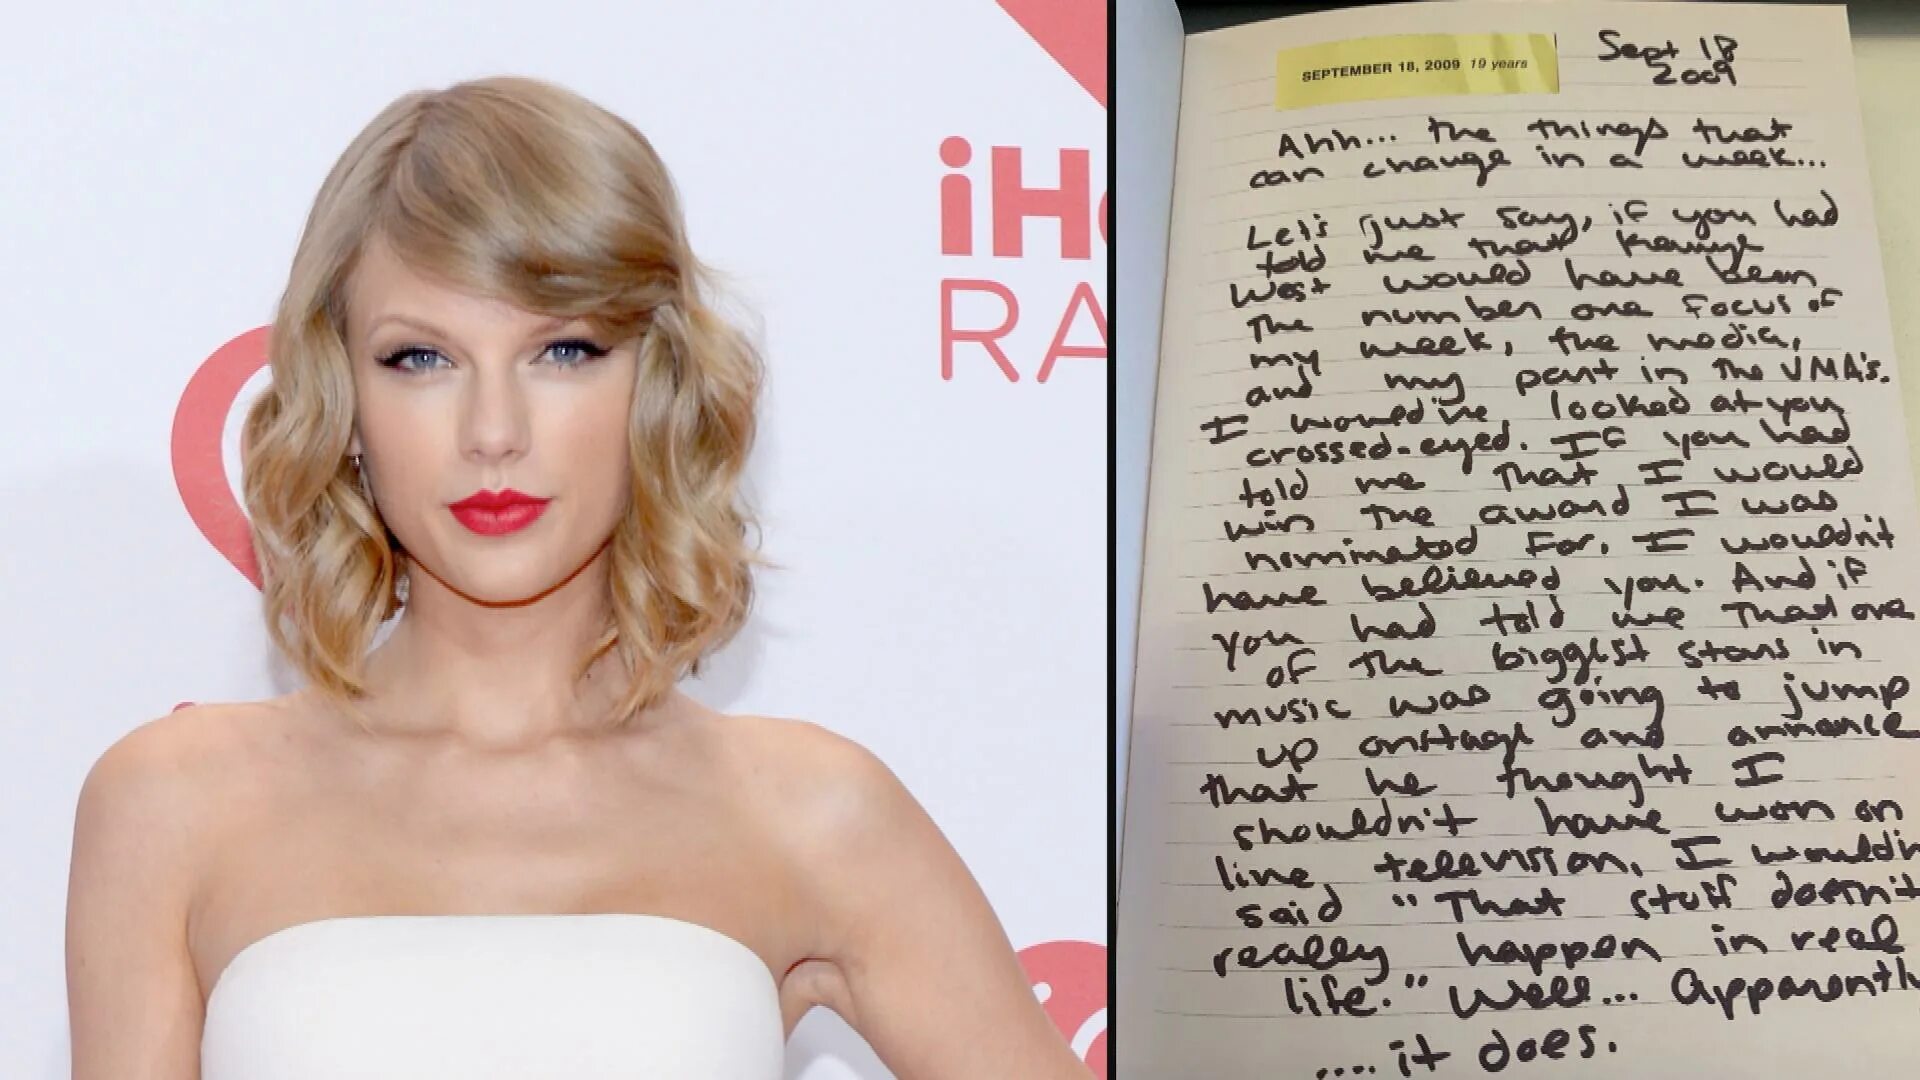 iH
RA
SEPTEMBER 18, 2009 19 years
Sept 18
2009
Ahh... the things that
can change in a week...
Let's just say, if you had
told me that Kanye
West would have been
the number one focus of
my week, the media,
and my part in the VMA's.
I would've looked at you
crossed-eyed. If you had
told me that I would
win the award I was
nominated for, I wouldn't
have believed you. And if
you had told me that one
of the biggest stars in
music was going to jump
up onstage and announce
that he thought I
shouldn't have won on
live television, I would
said "That stuff doesn't
really happen in real
life." Well... Apparently
.... it does.